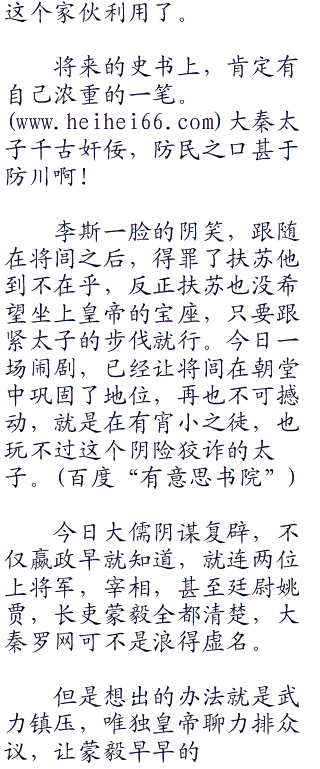 这个家伙利用了。
将来的史书上，肯定有
自己浓重的一笔。
(www.heihei66.com)大秦太
子千古奸佞，防民之口甚于
防川啊！
李斯一脸的阴笑，跟随
在将闾之后，得罪了扶苏他
到不在乎，反正扶苏也没希
望坐上皇帝的宝座，只要跟
紧太子的步伐就行。今日一
场闹剧，已经让将闾在朝堂
中巩固了地位，再也不可撼
动，就是在有宵小之徒，也
玩不过这个阴险狡诈的太
子。(百度“有意思书院”)
今日大儒阴谋复辟，不
仅嬴政早就知道，就连两位
上将军，宰相，甚至廷尉姚
贾，长吏蒙毅全都清楚，大
秦罗网可不是浪得虚名。
但是想出的办法就是武
力镇压，唯独皇帝聊力排众
议，让蒙毅早早的